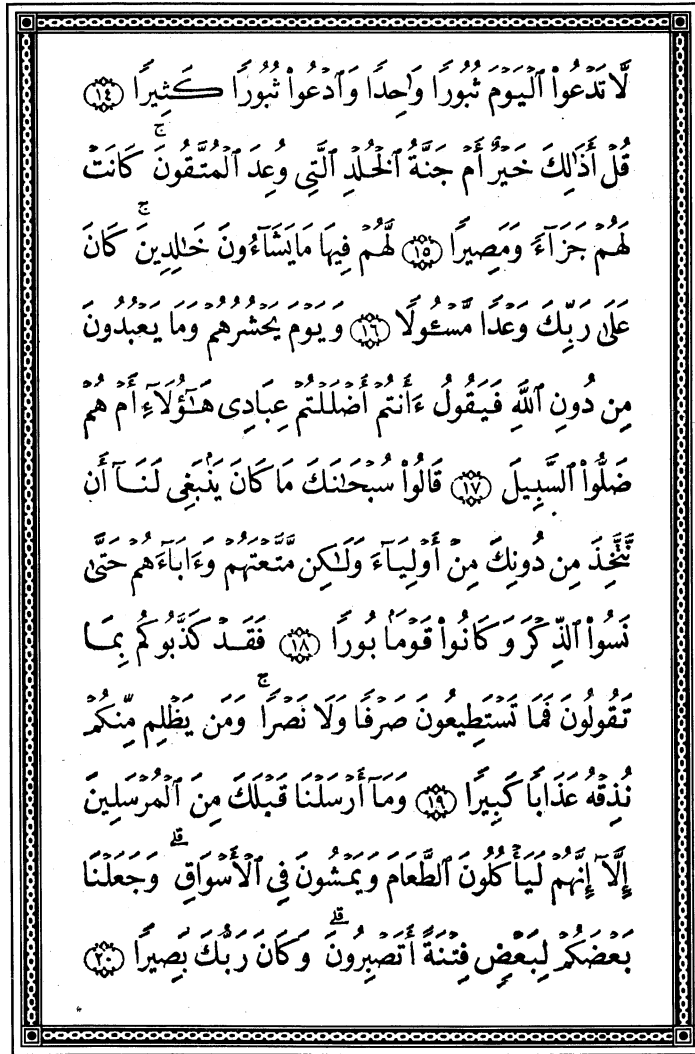 لَّا تَدْعُوا۟ ٱلْيَوْمَ ثُبُورًا وَٰحِدًا وَٱدْعُوا۟ ثُبُورًا كَثِيرًا ١٤
قُلْ أَذَٰلِكَ خَيْرٌ أَمْ جَنَّةُ ٱلْخُلْدِ ٱلَّتِى وُعِدَ ٱلْمُتَّقُونَ ۚ كَانَتْ
لَهُمْ جَزَآءً وَمَصِيرًا ١٥ لَّهُمْ فِيهَا مَا يَشَآءُونَ خَٰلِدِينَ ۚ كَانَ
عَلَىٰ رَبِّكَ وَعْدًا مَّسْـُٔولًا ١٦ وَيَوْمَ يَحْشُرُهُمْ وَمَا يَعْبُدُونَ
مِن دُونِ ٱللَّهِ فَيَقُولُ ءَأَنتُمْ أَضْلَلْتُمْ عِبَادِى هَٰٓؤُلَآءِ أَمْ هُمْ
ضَلُّوا۟ ٱلسَّبِيلَ ١٧ قَالُوا۟ سُبْحَٰنَكَ مَا كَانَ يَنۢبَغِى لَنَآ أَن
نَّتَّخِذَ مِن دُونِكَ مِنْ أَوْلِيَآءَ وَلَٰكِن مَّتَّعْتَهُمْ وَءَابَآءَهُمْ حَتَّىٰ
نَسُوا۟ ٱلذِّكْرَ وَكَانُوا۟ قَوْمًۢا بُورًا ١٨ فَقَدْ كَذَّبُوكُم بِمَا
تَقُولُونَ فَمَا تَسْتَطِيعُونَ صَرْفًا وَلَا نَصْرًا ۚ وَمَن يَظْلِم مِّنكُمْ
نُذِقْهُ عَذَابًا كَبِيرًا ١٩ وَمَآ أَرْسَلْنَا قَبْلَكَ مِنَ ٱلْمُرْسَلِينَ
إِلَّآ إِنَّهُمْ لَيَأْكُلُونَ ٱلطَّعَامَ وَيَمْشُونَ فِى ٱلْأَسْوَاقِ ۗ وَجَعَلْنَا
بَعْضَكُمْ لِبَعْضٍ فِتْنَةً أَتَصْبِرُونَ ۗ وَكَانَ رَبُّكَ بَصِيرًا ٢٠